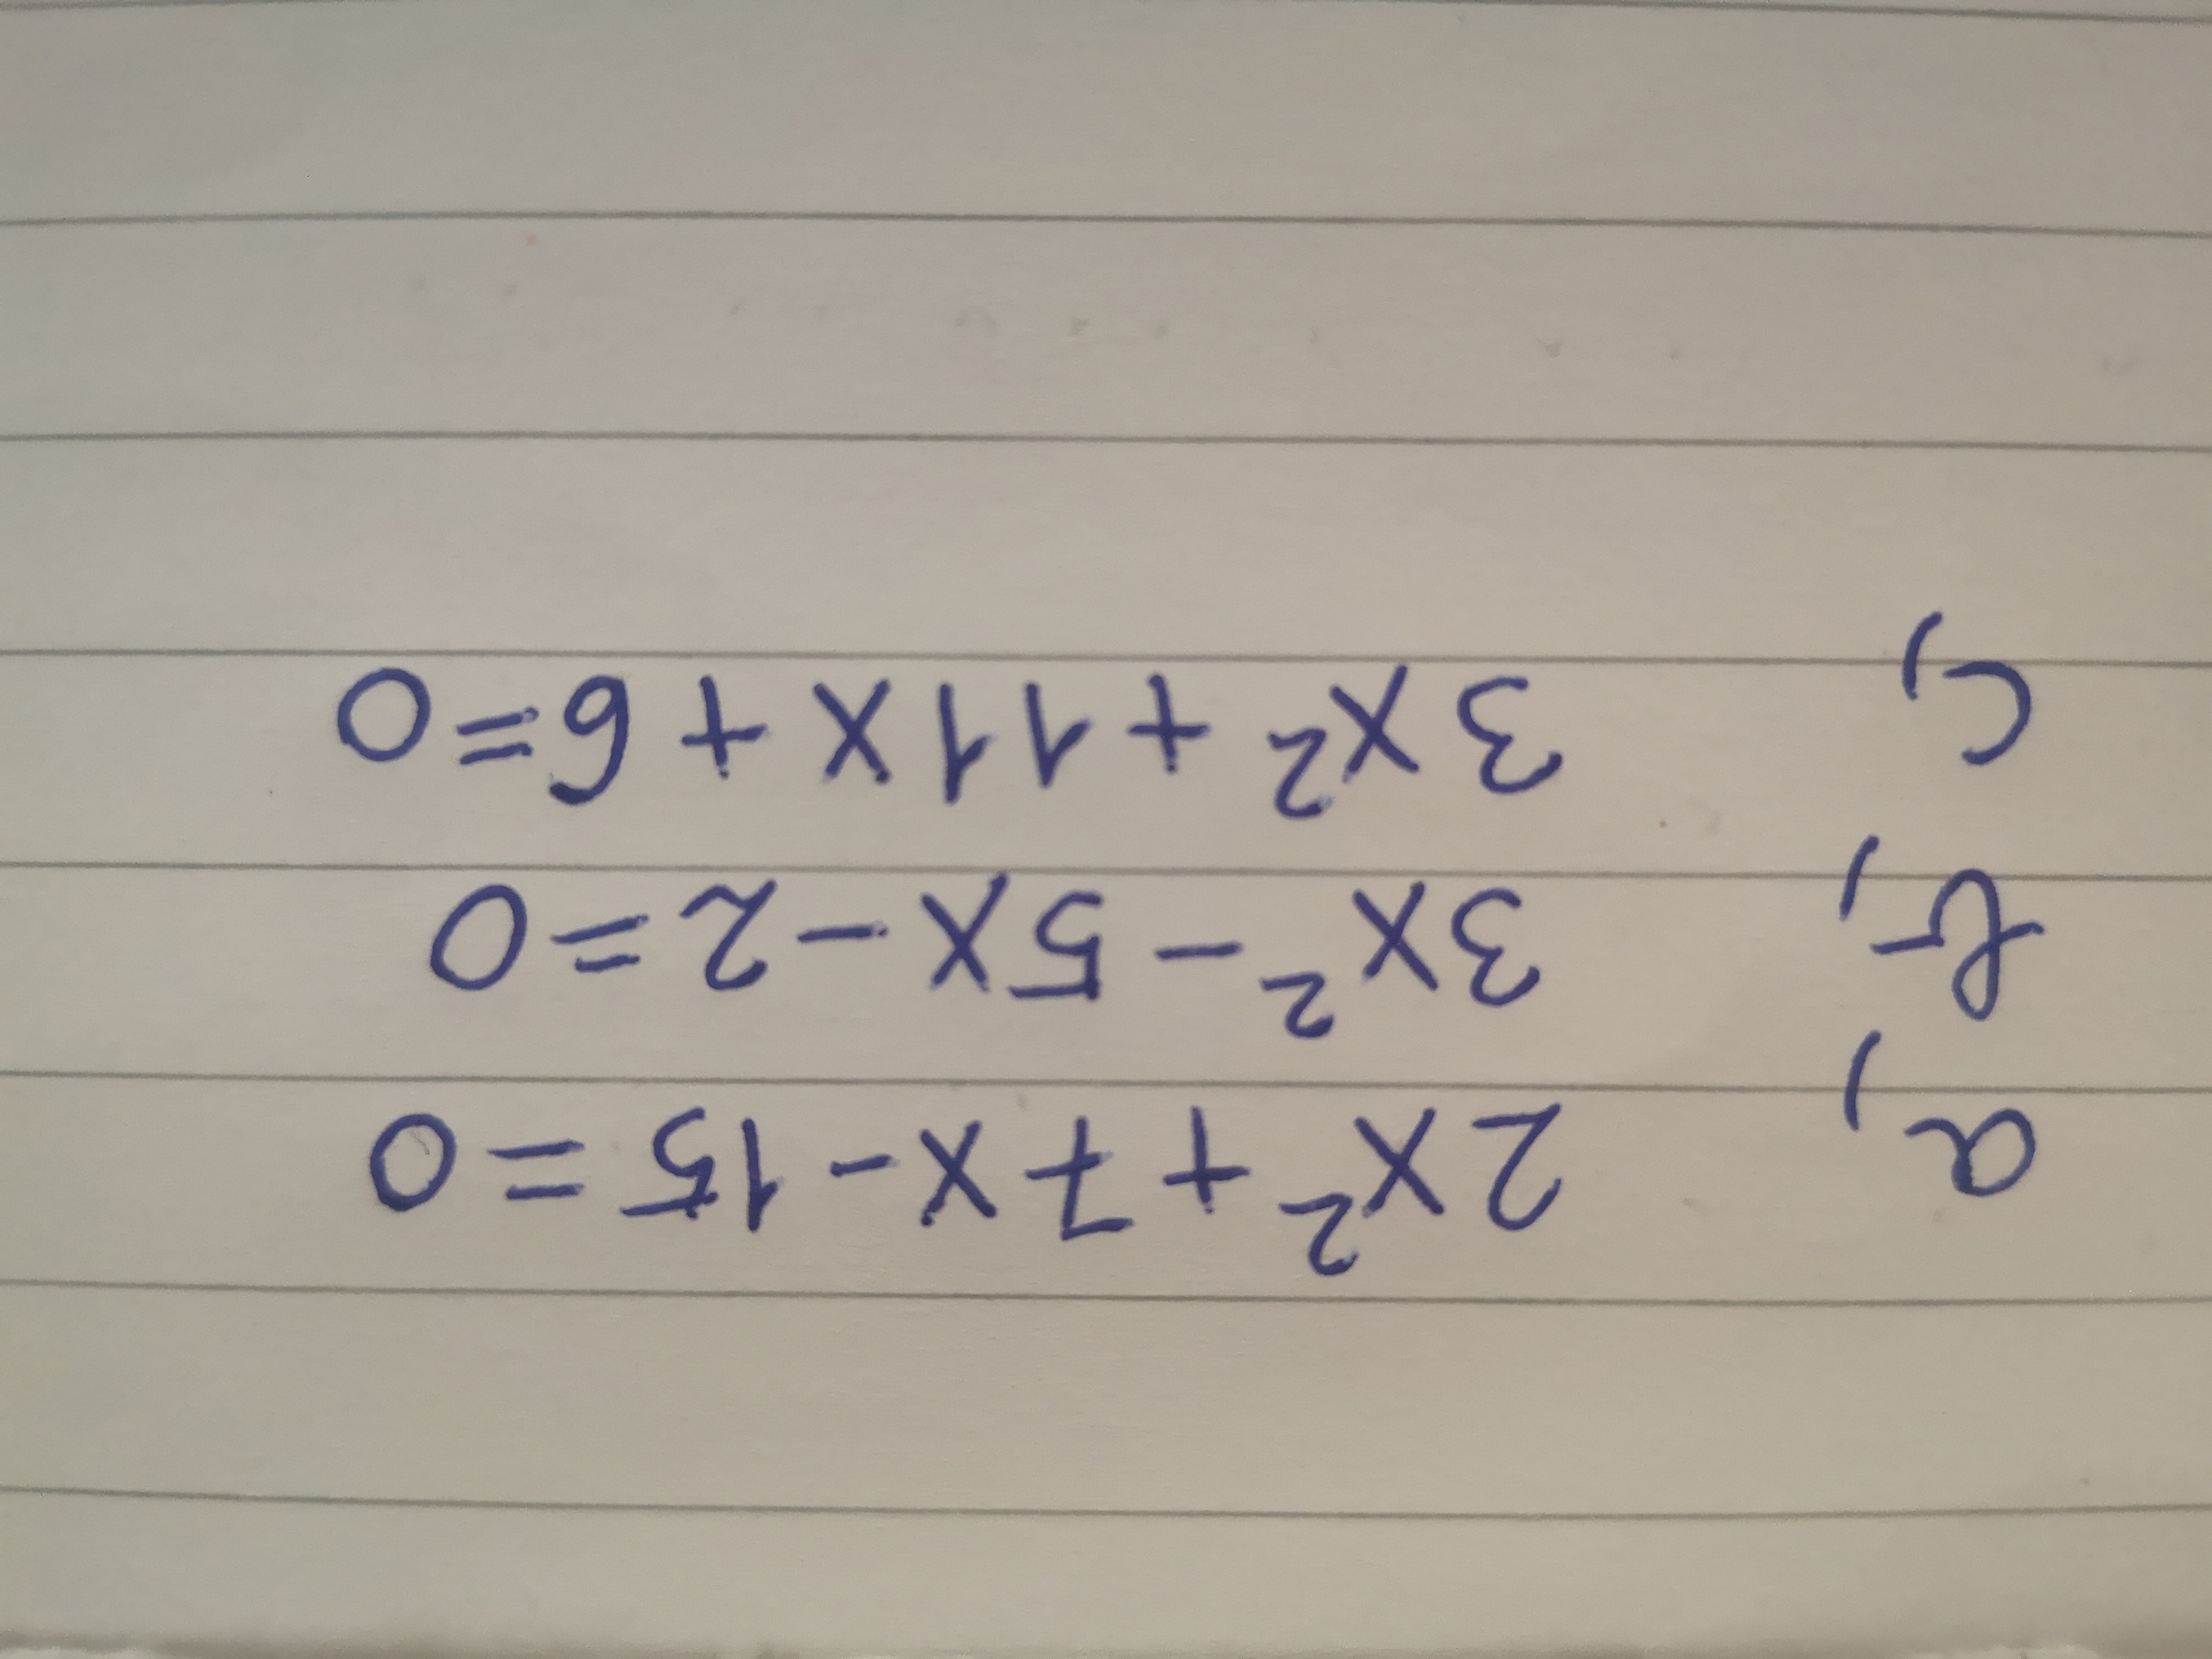 a, 2x² + 7x - 15 = 0
b, 3x² - 5x - 2 = 0
c, 3x² + 11x + 6 = 0